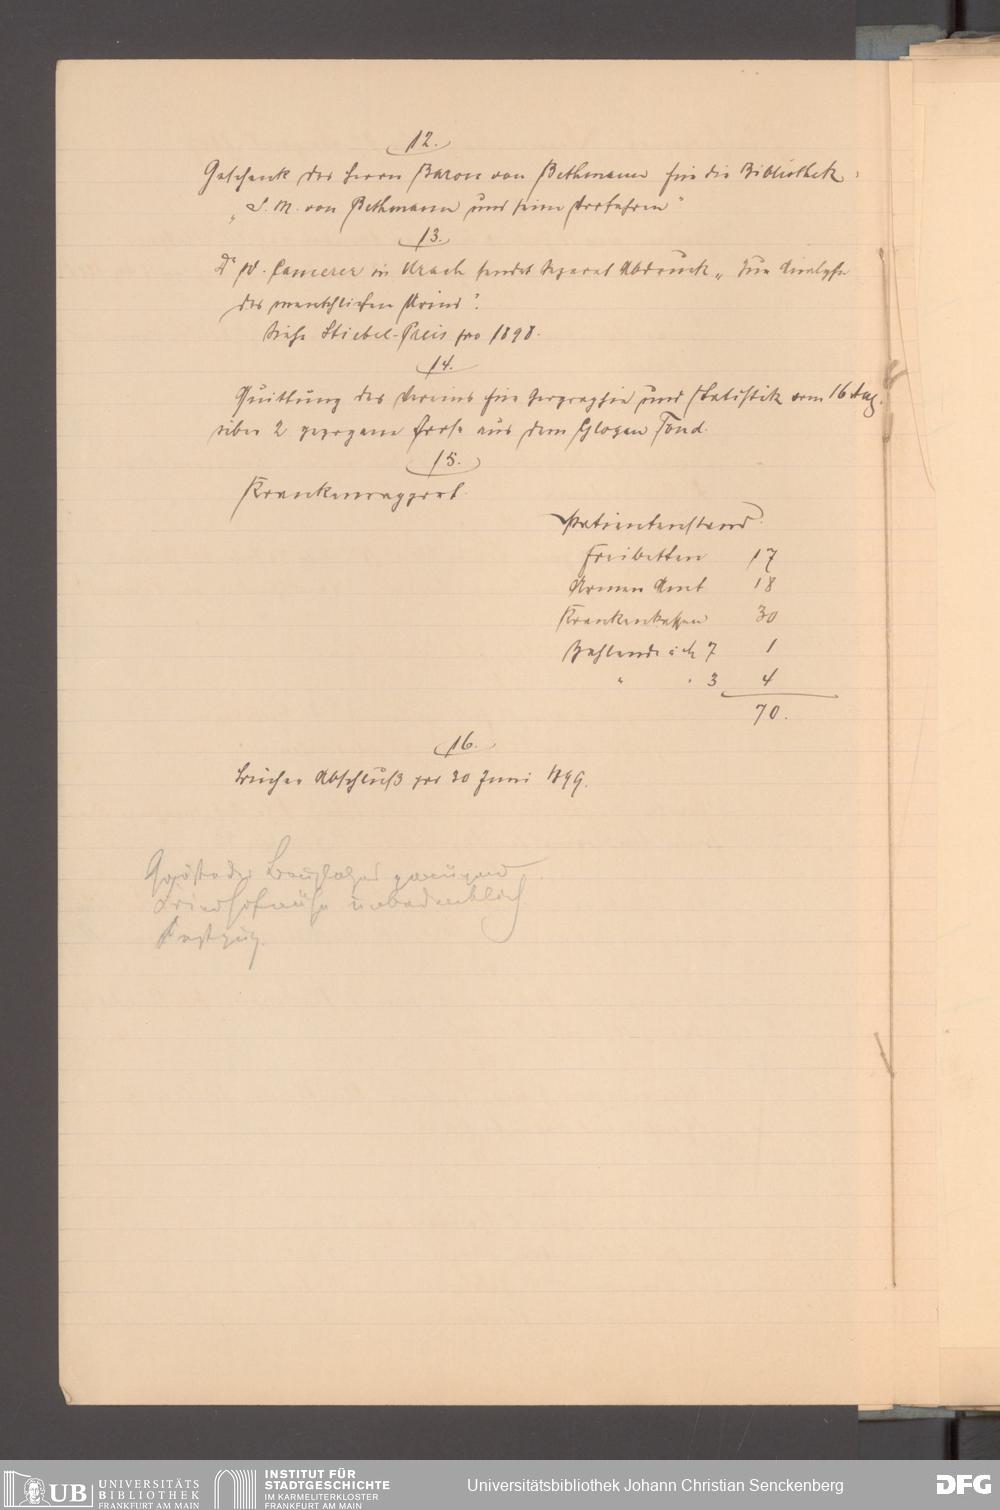 12.
Geschenk des Herrn Baron von Bethmann für die Bibliothek:
„S. M. von Bethmann und seine Vorfahren"
13.
Dr W. Camerer in Urach sendet Separat Abdruck „Zur Analyse
des menschlichen Urins".
Siehe Stiebel-Preis pro 1898.
14.
Quittung des Vereins für Geographie und Statistik vom 16 Aug.
über 2 gezogene Loose aus dem Glogau Fond.
15.
Krankenrapport.
Patientenstand.
Freibetten 17
Armen Amt 18
Krankenkassen 30
Zahlende à M 7 1
" " 3 4
70.
16.
Bücher Abschluß per 30 Juni 1899.
Friedhofnähe unbedenklich